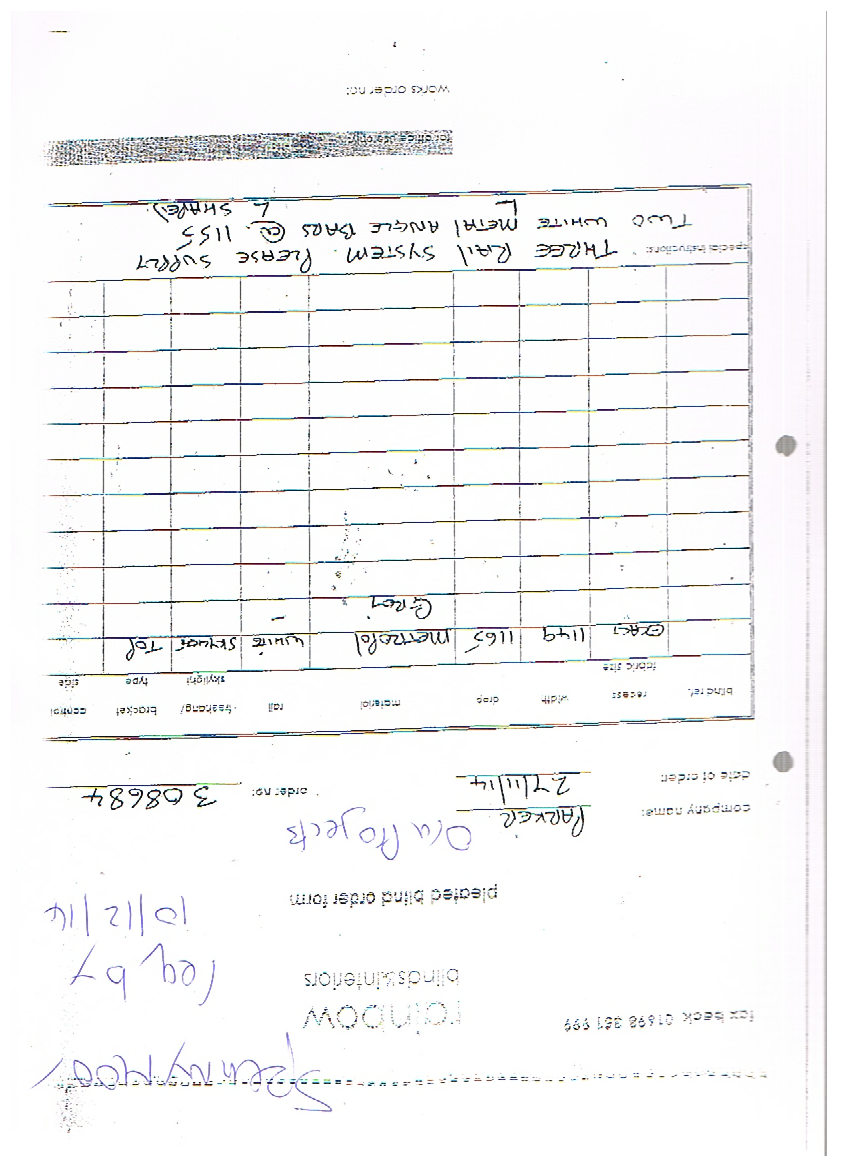 Spennymoor
fax back 01698 351 999
rainbow
blinds&interiors
req by
10/12/14
pleated blind order form
company name: PARKER
Our Projects
date of order: 27/11/14 order no: 308684
blind ref. recess fabric size width drop material rail freehang/ skylight bracket type control side
EXACT 1149 1165 METROPOL WHITE SKYLIGHT TOP
GREY
special instructions: THREE RAIL SYSTEM. PLEASE SUPPLY
TWO WHITE METAL ANGLE BARS @ 1155
L L SHAPE).
for office use only
works order no: